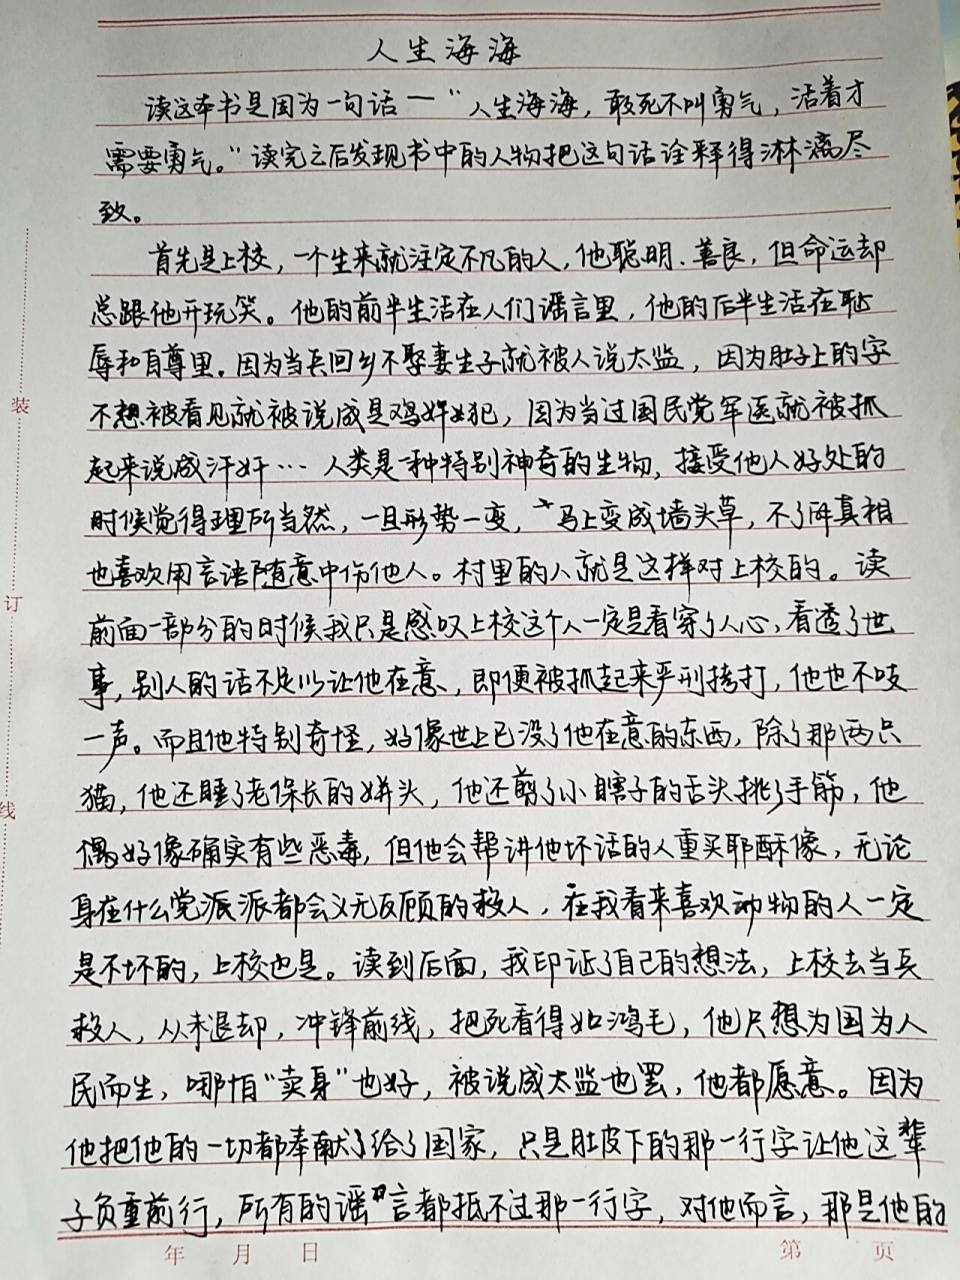 人生海海
读这本书是因为一句话一“人生海海，敢死不叫勇气，活着才
需要勇气。”读完之后发现书中的人物把这句话诠释得淋漓尽
致。
首先是上校，一个生来就注定不凡的人，他聪明、善良，但命运却
总跟他开玩笑。他的前半生活在人们谣言里，他的后半生活在耻
辱和自尊里。因为当兵回乡不娶妻生子就被人说太监，因为肚子上的字
不想被看见就被说成是鸡奸犯，因为当过国民党军医就被抓
起来说成汗奸… 人类是一种特别神奇的生物，接受他人好处的
时候觉得理所当然，一旦形势一变，马上变成墙头草，不了解真相
也喜欢用言语随意中伤他人。村里的人就是这样对上校的。读
前面一部分的时候我只是感叹上校这个人一定是看穿了人心，看透了世
事，别人的话不足以让他在意，即便被抓起来严刑拷打，他也不吱
一声。而且他特别奇怪，好像世上已没了他在意的东西，除了那两只
猫，他还睡了老保长的姘头，他还剪了小瞎子的舌头挑了手筋，他
偶好像确实有些恶毒，但他会帮讲他坏话的人重买耶酥像，无论
身在什么党派派都会义无反顾的救人，在我看来喜欢动物的人一定
是不坏的，上校也是。读到后面，我印证了自己的想法，上校去当兵
救人，从未退却，冲锋前线，把死看得如鸿毛，他只想为国为人
民而生，哪怕“卖身”也好，被说成太监也罢，他都愿意。因为
他把他的一切都奉献了给了国家，只是肚皮下的那一行字让他这辈
子负重前行，所有的谣言都抵不过那一行字，对他而言，那是他的
装
订
线
年 月 日
第 页